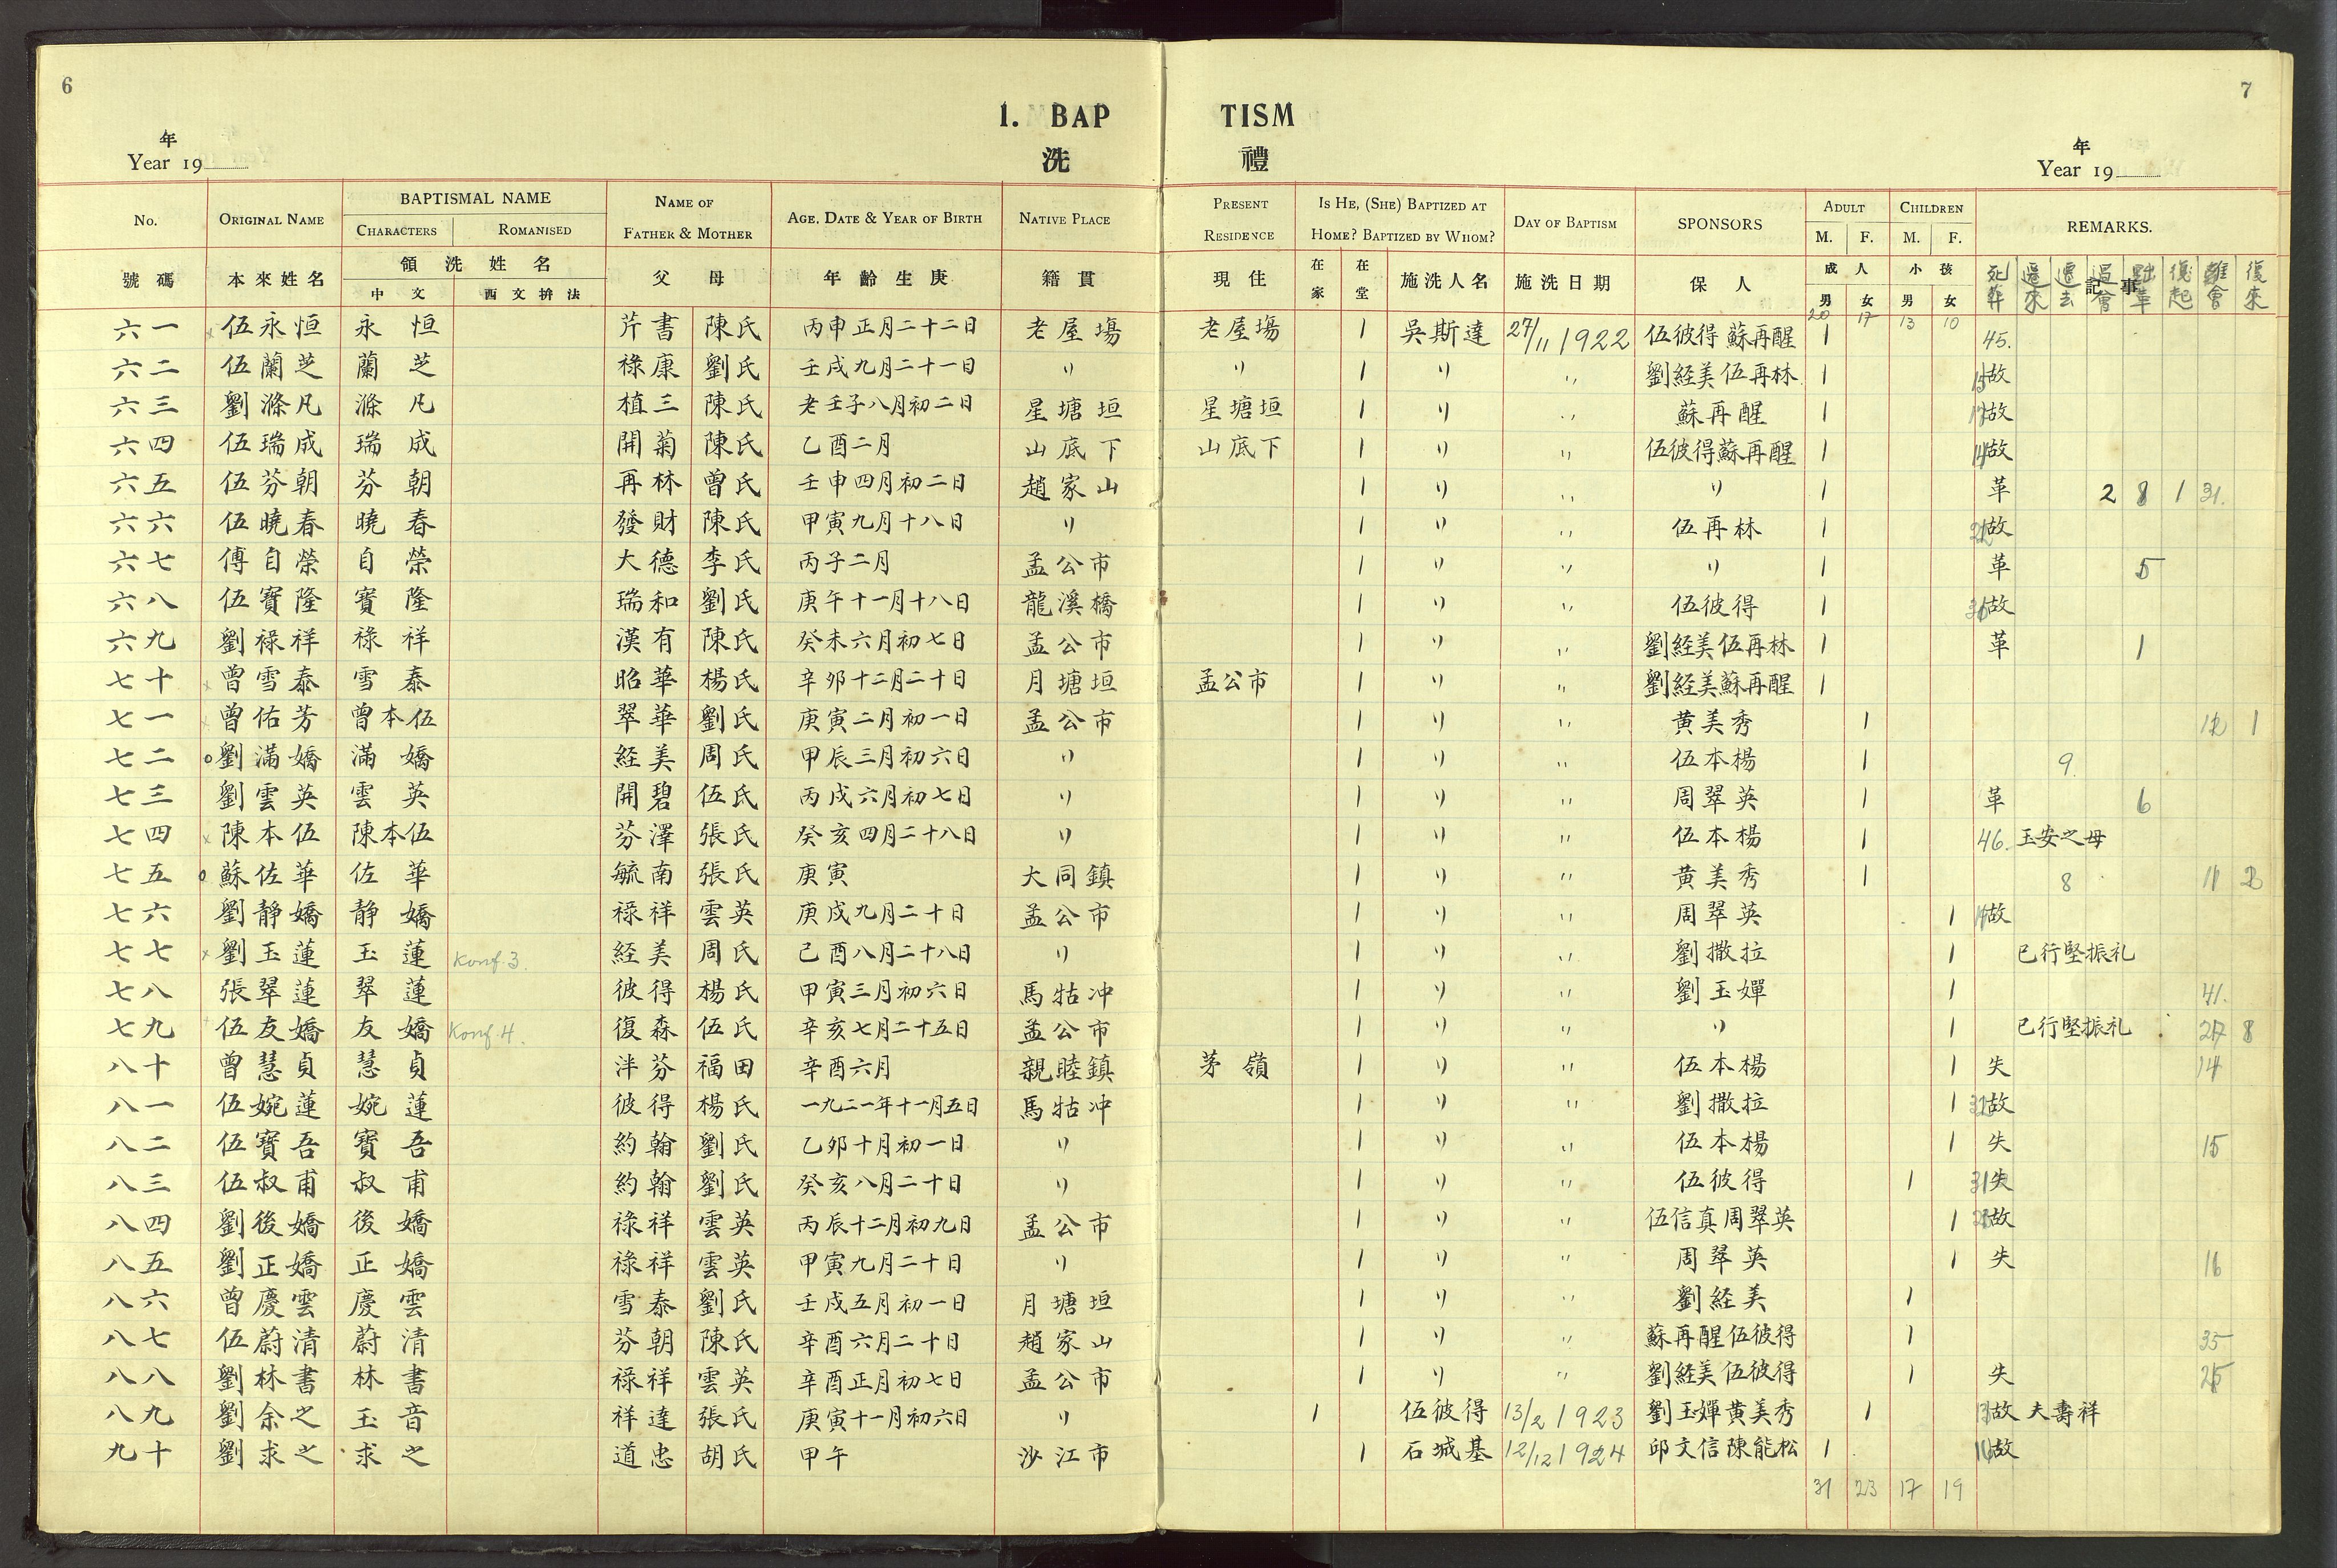 6
7
1. BAP TISM
洗 禮
年
Year 19
年
Year 19
No. ORIGINAL NAME BAPTISMAL NAME CHARACTERS ROMANISED NAME OF FATHER & MOTHER AGE, DATE & YEAR OF BIRTH NATIVE PLACE PRESENT RESIDENCE IS HE, (SHE) BAPTIZED AT HOME? BAPTIZED BY WHOM? DAY OF BAPTISM SPONSORS ADULT M. F. CHILDREN M. F. REMARKS.
號碼 本來姓名 領洗姓名 中文 西文拚法 父母 年齡生庚 籍貫 現住 在家 在堂 施洗人名 施洗日期 保人 成人 男 女 小孩 男 女 記事 死葬 遷來 遷去 過會 黜革 復起 離會 復來
20 17 13 10
六一 x 伍永恒 永恒 芹書 陳氏 丙申正月二十二日 老屋塲 老屋塲 1 吳斯達 27/11 1922 伍彼得 蘇再醒 1 45.
六二 伍蘭芝 蘭芝 祿康 劉氏 壬戌九月二十一日 〃 〃 1 〃 〃 劉経美伍再林 1 15故
六三 劉滌凡 滌凡 植三 陳氏 老壬子八月初二日 星塘垣 星塘垣 1 〃 〃 蘇再醒 1 故
六四 伍瑞成 瑞成 開菊 陳氏 乙酉二月 山底下 山底下 1 〃 〃 伍彼得蘇再醒 1 故
六五 伍芬朝 芬朝 再林 曾氏 壬申四月初二日 趙家山 1 〃 〃 〃 1 革 2 8 1 31.
六六 伍曉春 曉春 發財 陳氏 甲寅九月十八日 〃 1 〃 〃 伍再林 1 故
六七 傅自榮 自榮 大德 李氏 丙子二月 孟公市 1 〃 〃 〃 1 革 5
六八 伍寶隆 寶隆 瑞和 劉氏 庚午十一月十八日 龍溪橋 1 〃 〃 伍彼得 1 故
六九 劉祿祥 祿祥 漢有 陳氏 癸未六月初七日 孟公市 1 〃 〃 劉経美伍再林 1 革 1
七十 x 曾雪泰 雪泰 昭華 楊氏 辛卯十二月二十日 月塘垣 孟公市 1 〃 〃 劉経美蘇再醒 1
七一 x 曾佑芳 曾本伍 翠華 劉氏 庚寅二月初一日 孟公市 1 〃 〃 黄美秀 1 12 1
七二 o 劉滿嬌 滿嬌 経美 周氏 甲辰三月初六日 〃 1 〃 〃 伍本楊 1 9.
七三 劉雲英 雲英 開碧 伍氏 丙戌六月初七日 〃 1 〃 〃 周翠英 1 革 6
七四 x 陳本伍 陳本伍 芬澤 張氏 癸亥四月二十八日 〃 1 〃 〃 伍本楊 1 46. 玉安之母
七五 o 蘇佐華 佐華 毓南 張氏 庚寅 大同鎮 1 〃 〃 黄美秀 1 8 11 2
七六 劉静嬌 静嬌 祿祥 雲英 庚戌九月二十日 孟公市 1 〃 〃 周翠英 1 故
七七 x 劉玉蓮 玉蓮 Konf. 3. 経美 周氏 己酉八月二十八日 〃 1 〃 〃 劉撒拉 1 已行堅振礼
七八 張翠蓮 翠蓮 彼得 楊氏 甲寅三月初六日 馬牯冲 1 〃 〃 劉玉嬋 1 41.
七九 伍友嬌 友嬌 Konf. 4. 復森 伍氏 辛亥七月二十五日 孟公市 1 〃 〃 〃 1 已行堅振礼 27 8
八十 曾慧貞 慧貞 泮芬 福田 辛酉六月 親睦鎮 茅嶺 1 〃 〃 伍本楊 1 失 14
八一 伍婉蓮 婉蓮 彼得 楊氏 一九二一年十一月五日 馬牯冲 1 〃 〃 劉撒拉 1 32故
八二 伍寶吾 寶吾 約翰 劉氏 乙卯十月初一日 〃 1 〃 〃 伍本楊 1 失 15
八三 伍叔甫 叔甫 約翰 劉氏 癸亥八月二十日 〃 1 〃 〃 伍彼得 1 31失
八四 劉後嬌 後嬌 祿祥 雲英 丙辰十二月初九日 孟公市 1 〃 〃 伍信真周翠英 1 故
八五 劉正嬌 正嬌 祿祥 雲英 甲寅九月二十日 〃 1 〃 〃 周翠英 1 失 16
八六 曾慶雲 慶雲 雪泰 劉氏 壬戌五月初一日 月塘垣 1 〃 〃 劉経美 1
八七 伍蔚清 蔚清 芬朝 陳氏 辛酉六月二十日 趙家山 1 〃 〃 蘇再醒伍彼得 1 35
八八 劉林書 林書 祿祥 雲英 辛酉正月初七日 孟公市 1 〃 〃 劉経美伍彼得 1 失 25
八九 劉余之 玉音 祥達 張氏 庚寅十一月初六日 〃 1 伍彼得 13/2 1923 劉玉嬋黄美秀 1 故 夫壽祥
九十 劉求之 求之 道忠 胡氏 甲午 沙江市 1 石城基 12/12 1924 邱文信陳能松 1 故
31 23 17 19